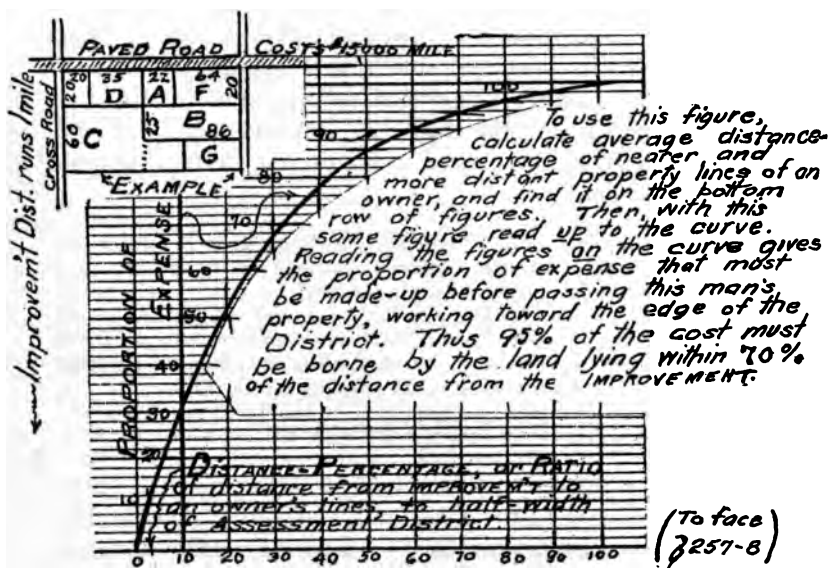 PAVED ROAD COSTS $15000 MILE
20 20 35 22 64
D A F 20
60 C 25 B 86
G
Cross Road
EXAMPLE
← Improvem't Dist. runs 1 mile
PROPORTION OF
EXPENSE
To use this figure,
calculate average distance-
percentage of nearer and
more distant property lines of an
owner, and find it on the bottom
row of figures. Then, with this
same figure read up to the curve.
Reading the figures on the curve gives
the proportion of expense that must
be made-up before passing this man's
property, working toward the edge of the
District. Thus 95% of the cost must
be borne by the land lying within 70%
of the distance from the IMPROVEMENT.
100
90
80
70
60
50
40
30
20
10
DISTANCE-PERCENTAGE, or RATIO
of distance from IMPROVEM'T to
an owner's lines, to half-width
of Assessment District.
0 10 20 30 40 50 60 70 80 90 100
(To face
257-8)